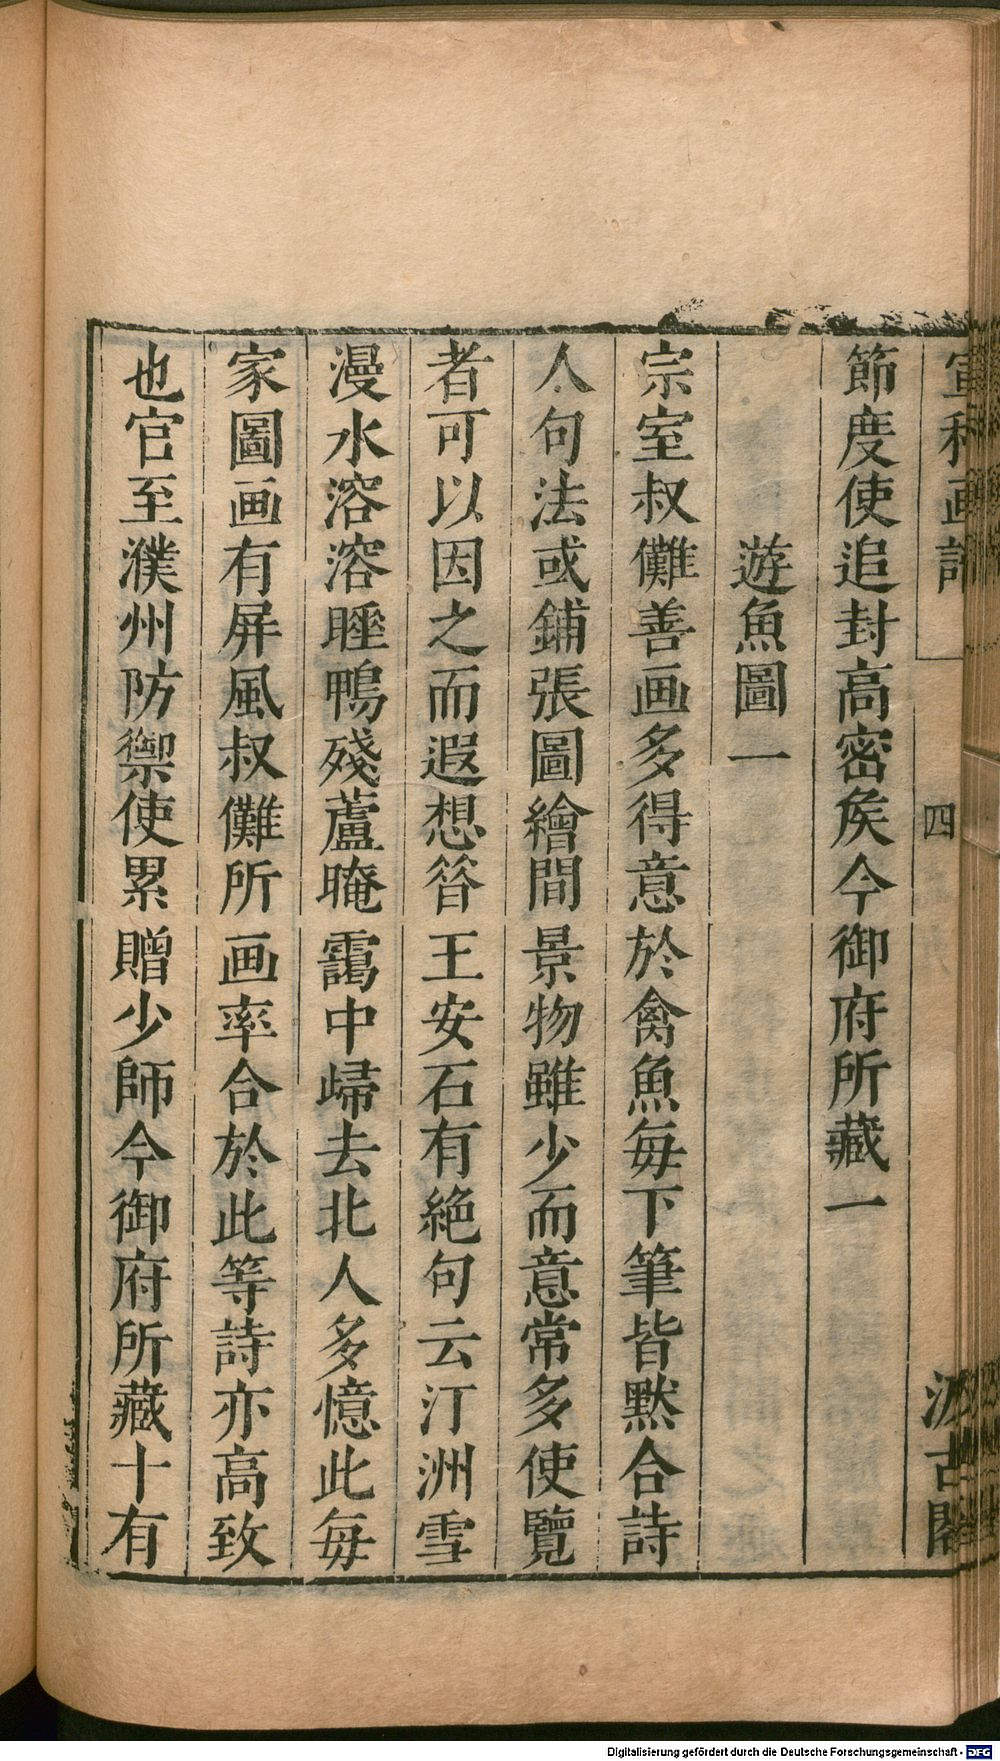 宣和画譜 四 汲古閣
節度使追封高密矦今御府所藏一
遊魚圖一
宗室叔儺善画多得意於禽魚每下筆皆黙合詩
人句法或鋪張圖繪間景物雖少而意常多使覽
者可以因之而遐想昝王安石有絶句云汀洲雪
漫水溶溶睡鴨殘蘆晻靄中㱕去北人多憶此每
家圖画有屏風叔儺所画率合於此等詩亦高致
也官至濮州防禦使累贈少師今御府所藏十有
Digitalisierung gefördert durch die Deutsche Forschungsgemeinschaft - DFG